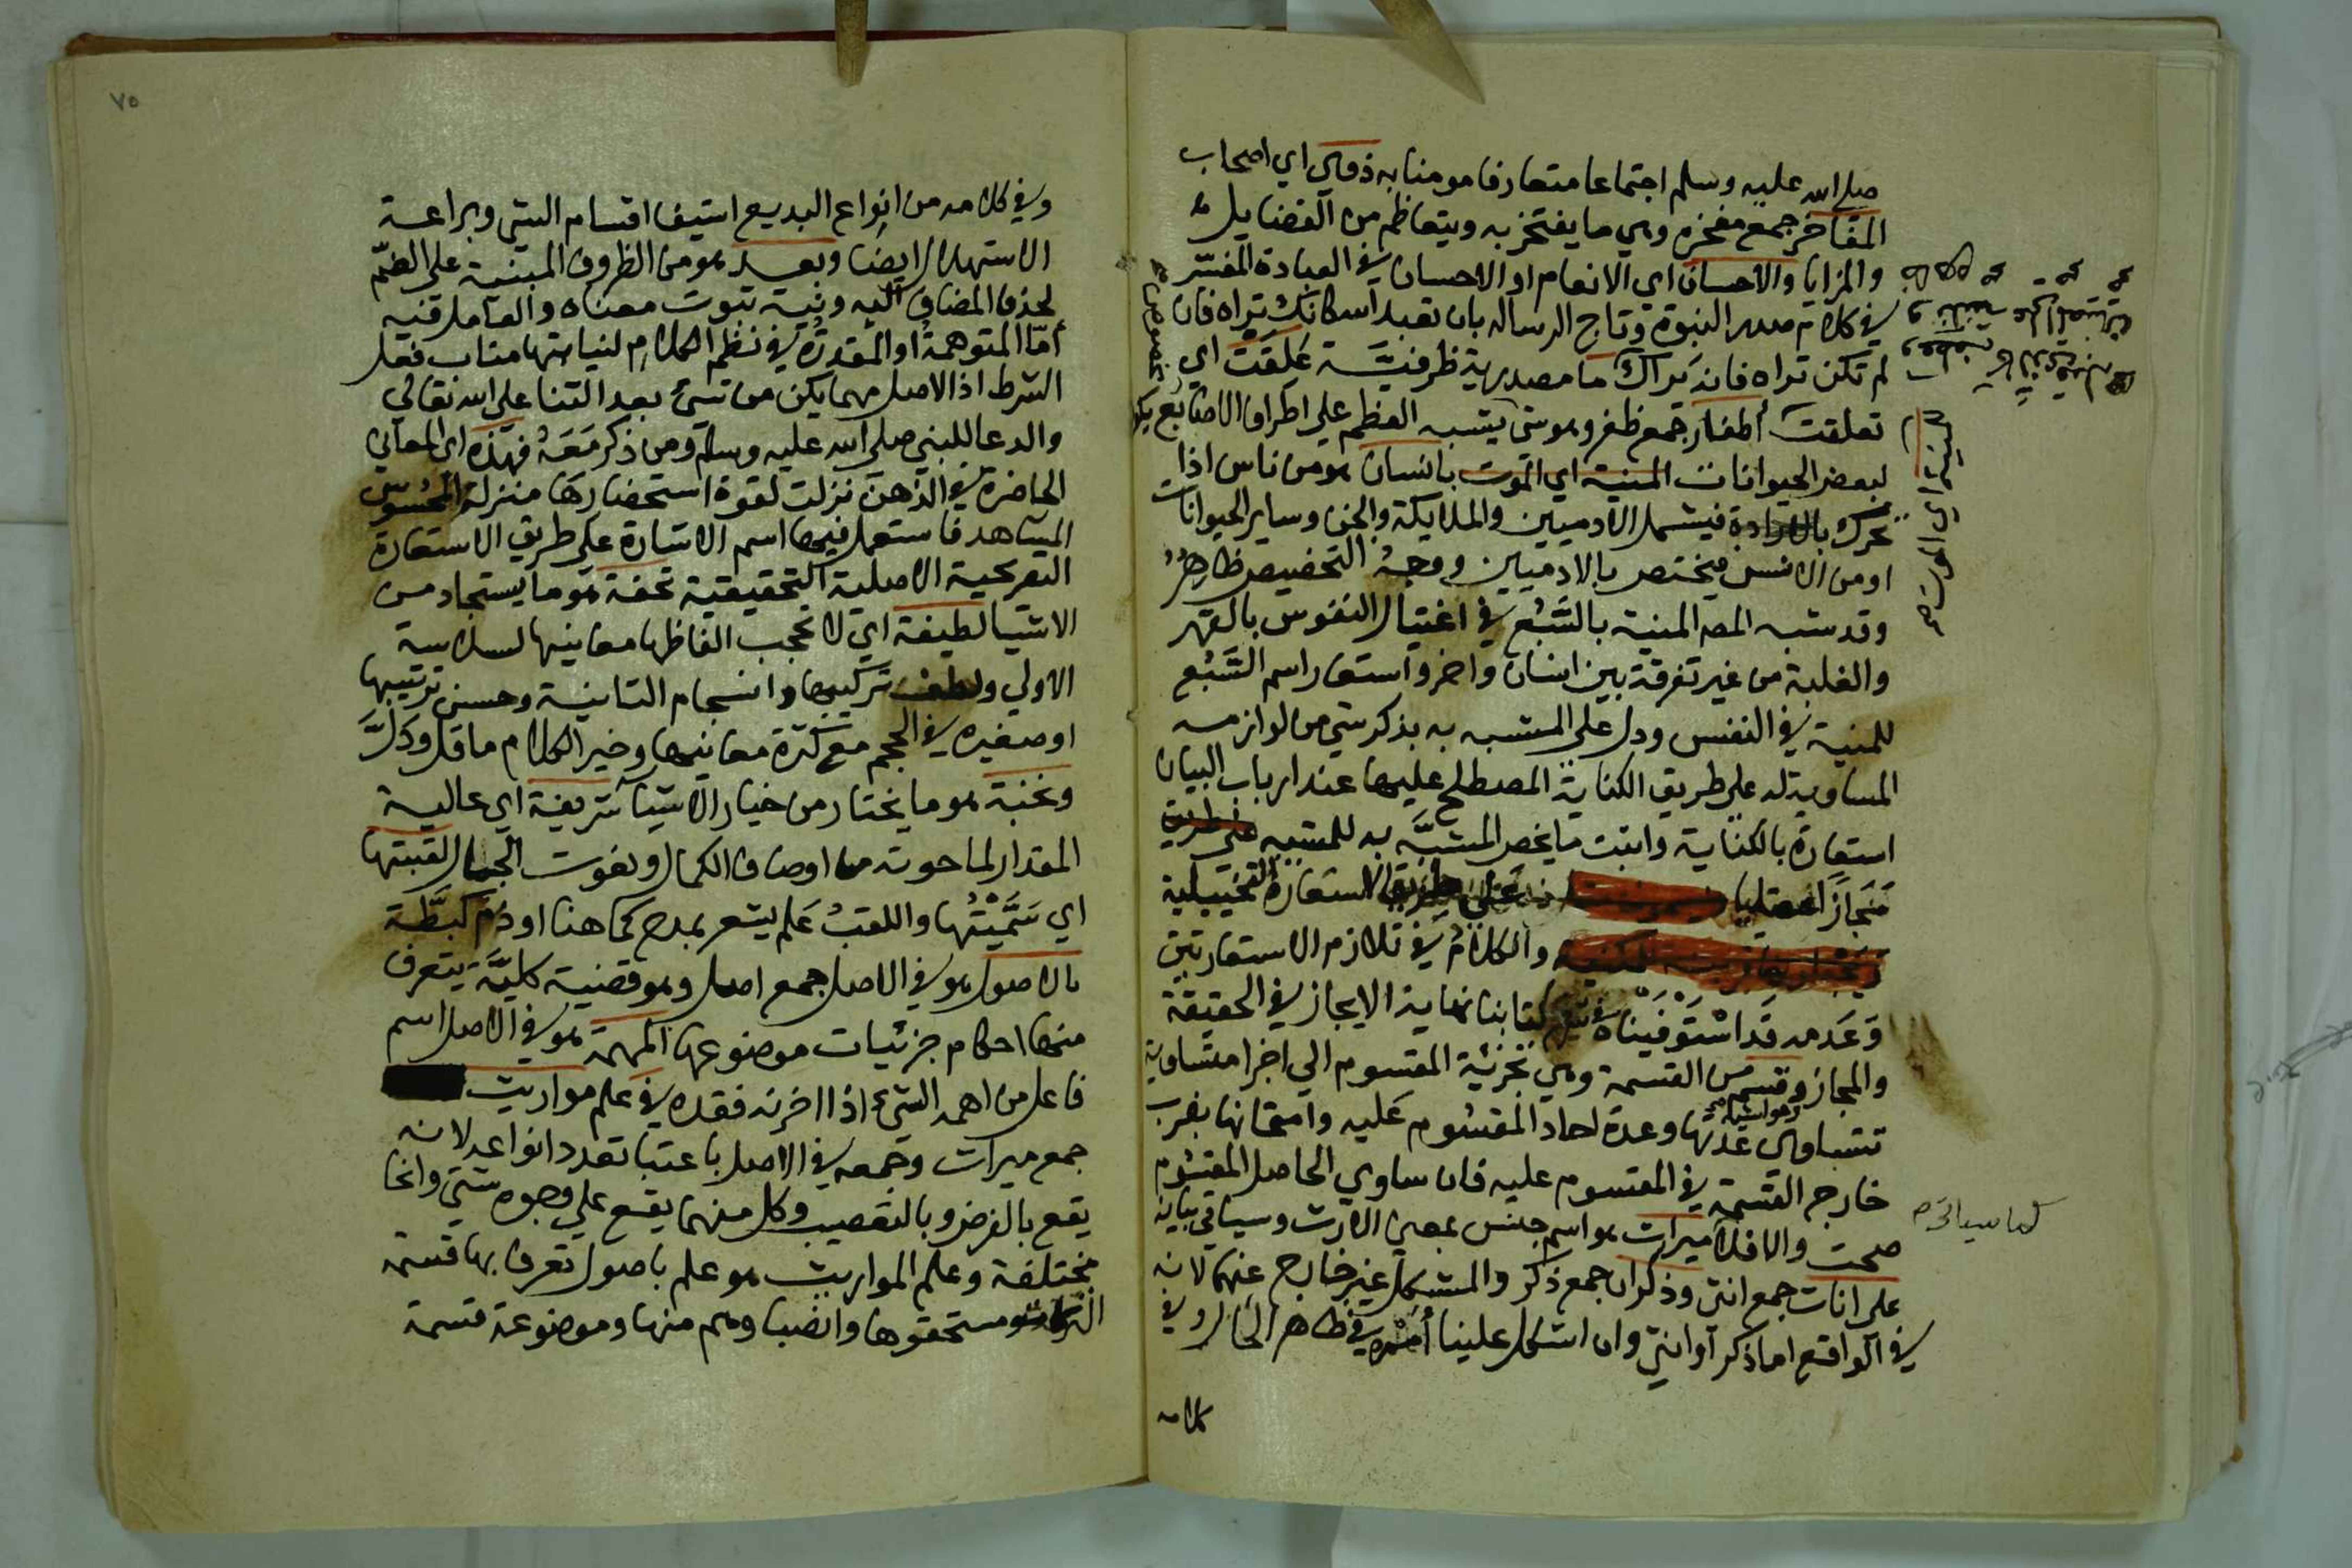 صلى الله عليه وسلم اجتماعا متعارفا مومنا به ذوي اي اصحاب
المفاخر جمع مفخرة وهي ما يفتخر به ويتعاظم من الفضايل
والمزايا والاحسان اي الانعام او الاحسان في العبادة المفسر
في كلام صدر النبوة وتاج الرساله بان تعبد الله كانك تراه فان
لم تكن تراه فانه يراك ما مصدرية ظرفية علقت اي
تعلقت أظفار جمع ظفر وهو شي يشبه العظم على اطراف الاصابع يكون
لبعض الحيوانات المنية اي الموت بانسان هو من ناس اذا
تحرك بالارادة فيشمل الادميين والملايكة والجن وساير الحيوانات
او من الانس فيختص بالادميين ووجه التخصيص ظاهر
وقد شبه المص المنية بالسَّبُع في اغتيال النفوس بالقهر
والغلبة من غير تفرقة بين انسان واخر واستعار اسم السَّبُع
للمنية في النفس ودل على المشبه به بذكر شي من لوازمه
المساوية له على طريق الكناية المصطلح عليها عند ارباب البيان
استعارة بالكناية واثبت ما يخص المشبَّه به للمشبه على طريق
مَجازا عقليا على طريق الاستعارة التخييلية
والكلامُ في تلازم الاستعارتين
وَعَدَمه قد اسْتَوْفَيْنَاهُ في كتابنا نهاية الايجاز في الحقيقة
والمجاز وقسم من القسمة وهي تجزئة المقسوم الى اجزا متساوية
تتساوى عدتها وعدة احاد المقسُوم عليه وامتحانها بضرب
خارج القسمة في المقسوم عليه فان ساوي الحاصل المقسُوم
صحت والا فلا ميراث هو اسم جنس بمعنى الارث وسياتي بيانه
على اناث جمع انثى وذكران جمع ذكر والمشكل غير خارج عنهما لانه
في الواقع اما ذكر او انثى وان اشكل علينا أمره في ظاهر الحال وفي
كلامه
المنية اي الموت صح
كما سياتي صح
٧٥
وفي كلامه من انواع البديع استيفا اقسام الشي وبراعة
الاستهلال ايضا وبعد هو من الظروف المبنية على الضمّ
لحذف المضاف اليه ونية ثبوت معناه والعامل فيه
أمّا المتوهمةُ او المقدرةُ في نظم الكلام لنيابتها مناب فعل
الشرط اذ الاصل مهما يكن من شيء بعد الثنا على الله تعالى
والدعا للنبي صلى الله عليه وسلم ومن ذكر مَعَهُ فهذه اي المعاني
الحاضرة في الذهن نزلت لقوة استحضارها منزلة المحسوس
المشاهد فاستعمل فيها اسم الاشارة على طريق الاستعارة
التصريحية الاصلية التحقيقية تحفة هو ما يستجاد من
الاشيا لطيفة اي لا تحجب الفاظها معانيها لسلاسة
الاولي ولطف تركيبها وانسجام الثانية وحسن ترتيبها
او صغيرة في الحجم مع كثرة معانيها وخير الكلام ما قل ودَلَّ
ونخبة هو ما يختار من خيار الاشيا شريفة اي عالية
المقدار لما حوته من اوصاف الكمال ونعوت الجمال لقبتها
اي سَمَّيْتُها واللقبُ عَلم يشعر بمدح كما هنا او ذم كبَطَّة
بالاصول هو في الاصل جمع اصل وهو قضية كليَّة يتعرف
منها احكام جزئيات موضوعها المهمة هو في الاصل اسم
فاعل من اهمه الشيء اذا احزنه فقده في عَلم مواريث
جمع ميراث وجمعه في الاصل باعتبار تعدد انواعه لانه
يقع بالفرض وبالتعصيب وكل منهما يقع على وجوه شتى وانحا
مختلفة وعلم المواريث هو علم باصول تعرف بها قسمة
التركات ومستحقوها وانصباوهم منها وموضوعة قسمة